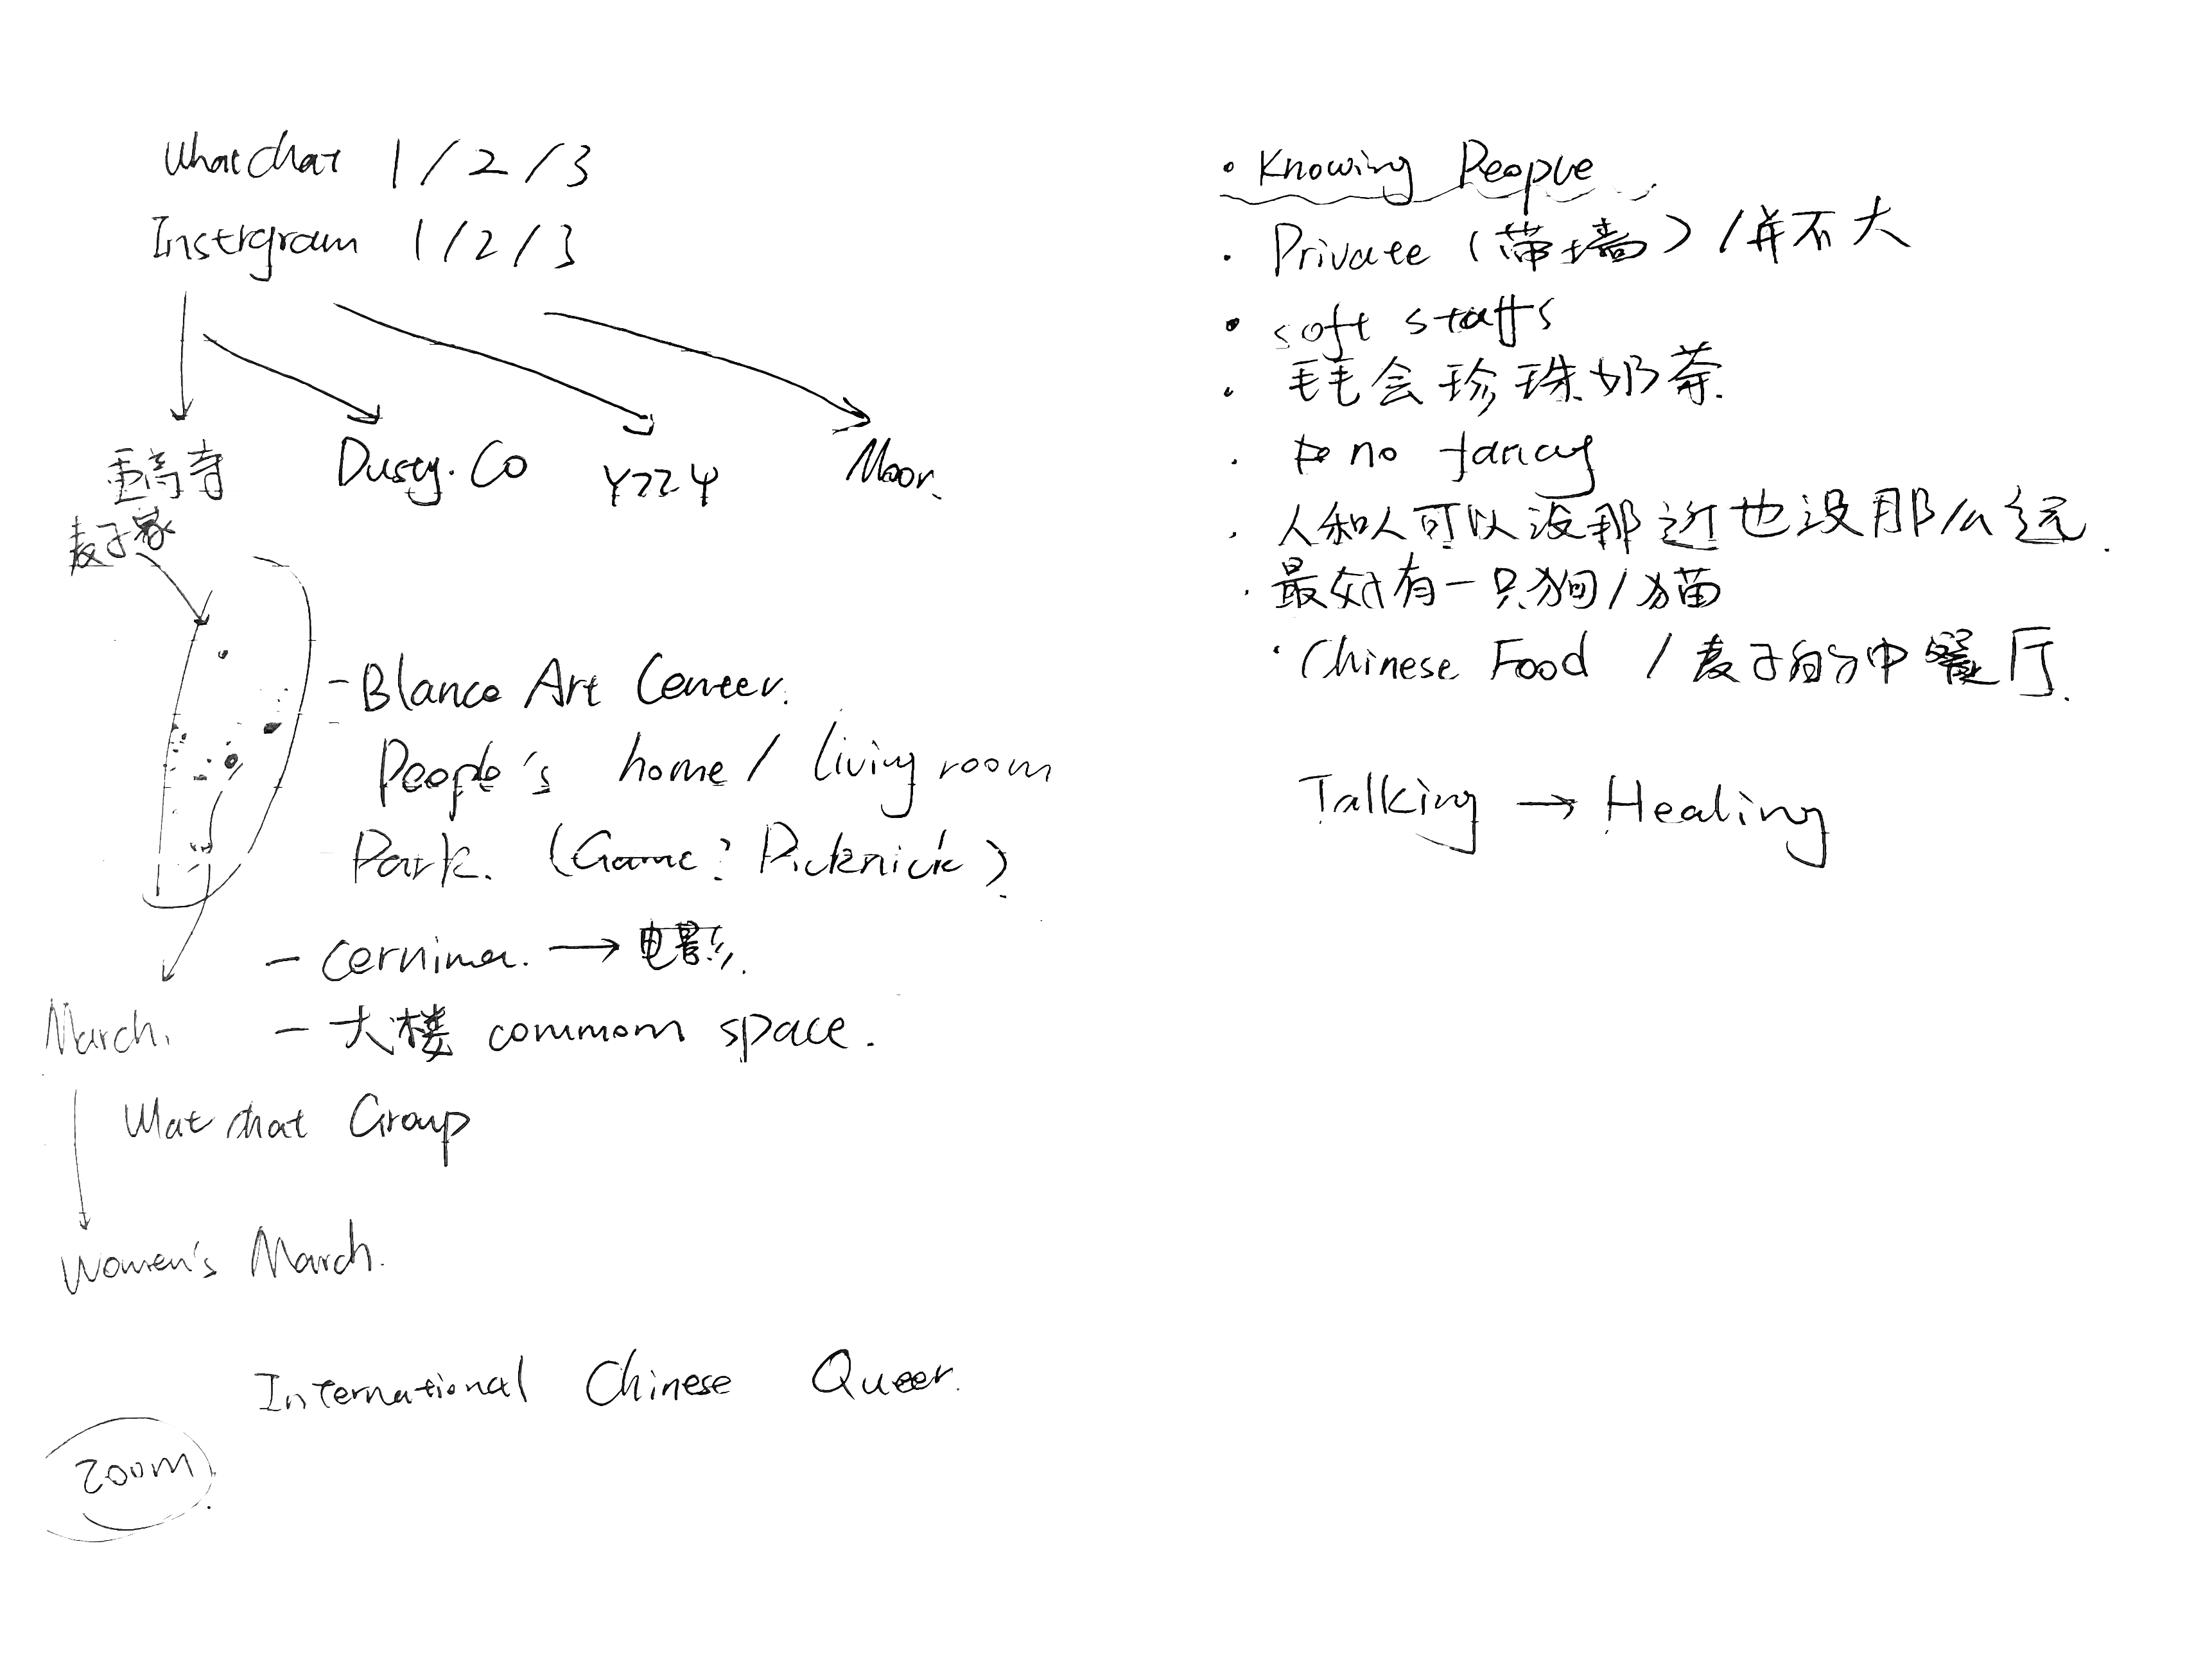 Whatchat 1/2/3
Instrgram 1/2/3
重高寺
Dusty.Co
Moor.
麦子家
- Blanco Art Center.
People's home/living room
Park. (Game? Picknick)
- Cernima. → 电影.
March.
- 大楼 common space.
Wat chat Group
Women's March.
International Chinese Queer.
Zoom
· Knowing People
· Private (带墙) /并不大
· soft staffs
· 毛毛会珍珠奶茶.
· no fancy
· 人和人可以没那近也没那么远.
· 最好有一只狗/猫
· Chinese Food / 麦子的中餐厅.
Talking → Healing